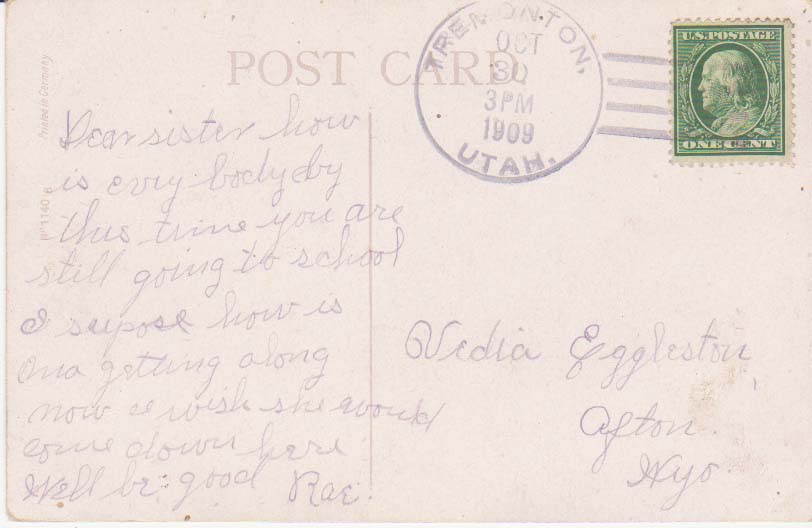 POST CARD
TREMONTON,
OCT
30
3PM
1909
UTAH.
U.S. POSTAGE
ONE CENT
Printed in Germany
Nº 1140 B
Dear sister how
is evry body by
this time you are
still going to school
I supose how is
Ona getting along
now I wish she would
come down here
Well be good Rae.
Vedia Eggleston,
Afton.
Wyo.